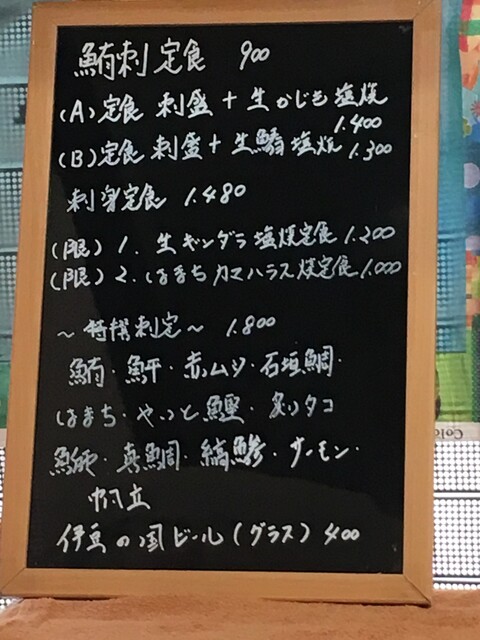 鮪刺定食 900
(A)定食 刺盛+生かじき塩焼 1.400
(B)定食 刺盛+生鰆塩焼 1.300
刺身定食 1.480
(限)1.生ギンダラ塩焼定食 1.200
(限)2.はまちカマハラス焼定食 1.000
〜特撰刺定〜 1.800
鮪・鮃・赤ムツ・石垣鯛・
はまち・やいと鰹・炙りタコ
真鯛・縞鯵・サーモン・
帆立
伊豆の国ビール(グラス) 400